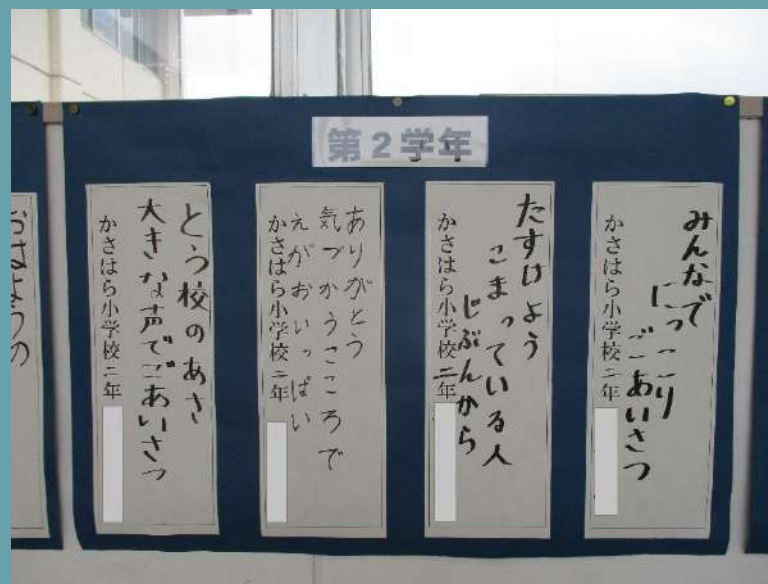 第2学年
みんなで
にっこり
ごあいさつ
かさはら小学校二年
たすけよう
こまっている人
じぶんから
かさはら小学校二年
ありがとう
気づかうこころで
えがおいっぱい
かさはら小学校二年
とう校のあさ
大きな声でごあいさつ
かさはら小学校二年
おはようの